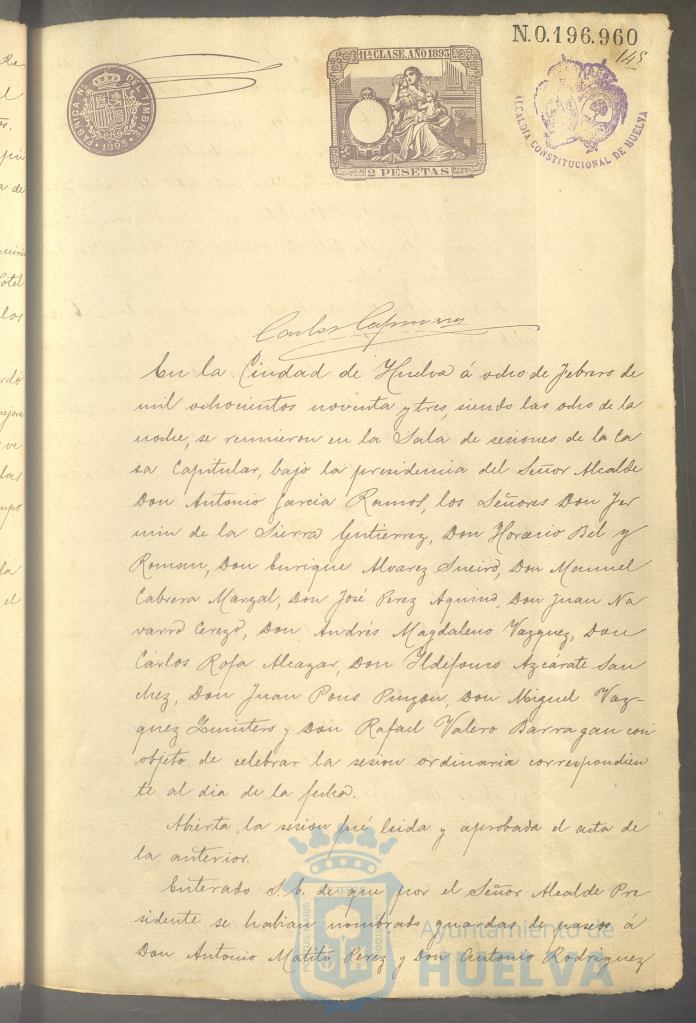 N.0.196.960
148
11ª CLASE. AÑO 1893
2 PESETAS
FABRICA NAL DEL TIMBRE
1893
ALCALDIA CONSTITUCIONAL DE HUELVA
Carlos
En la Ciudad de Huelva á ocho de Febrero de
mil ochocientos noventa y tres, siendo las ocho de la
noche, se reunieron en la Sala de sesiones de la Ca
sa Capitular, bajo la presidencia del Señor Alcalde
Don Antonio García Ramos, los Señores Don Fer
min de la Sierra Gutierrez, Don Horacio Bel y
Roman, Don Enrique Alvarez Sueiro, Don Manuel
Cabrera Marzal, Don José Perez Aquino, Don Juan Na
varro Cerezo, Don Andrés Magdaleno Vazquez, Don
Cárlos Rofa Alcazar, Don Ildefonso Azcárate San
chez, Don Juan Pons Pinzon, Don Miguel Vaz-
quez Quintero y Don Rafael Valero Barragan con
objeto de celebrar la sesion ordinaria correspondien
te al dia de la fecha.
Abierta la sesion fué leida y aprobada el acta de
la anterior.
Enterado S.E. de que por el Señor Alcalde Pre
sidente se habian nombrado guardas de paseo á
Don Antonio Matito Perez y Don Antonio Rodriguez
Ayuntamiento de
HUELVA